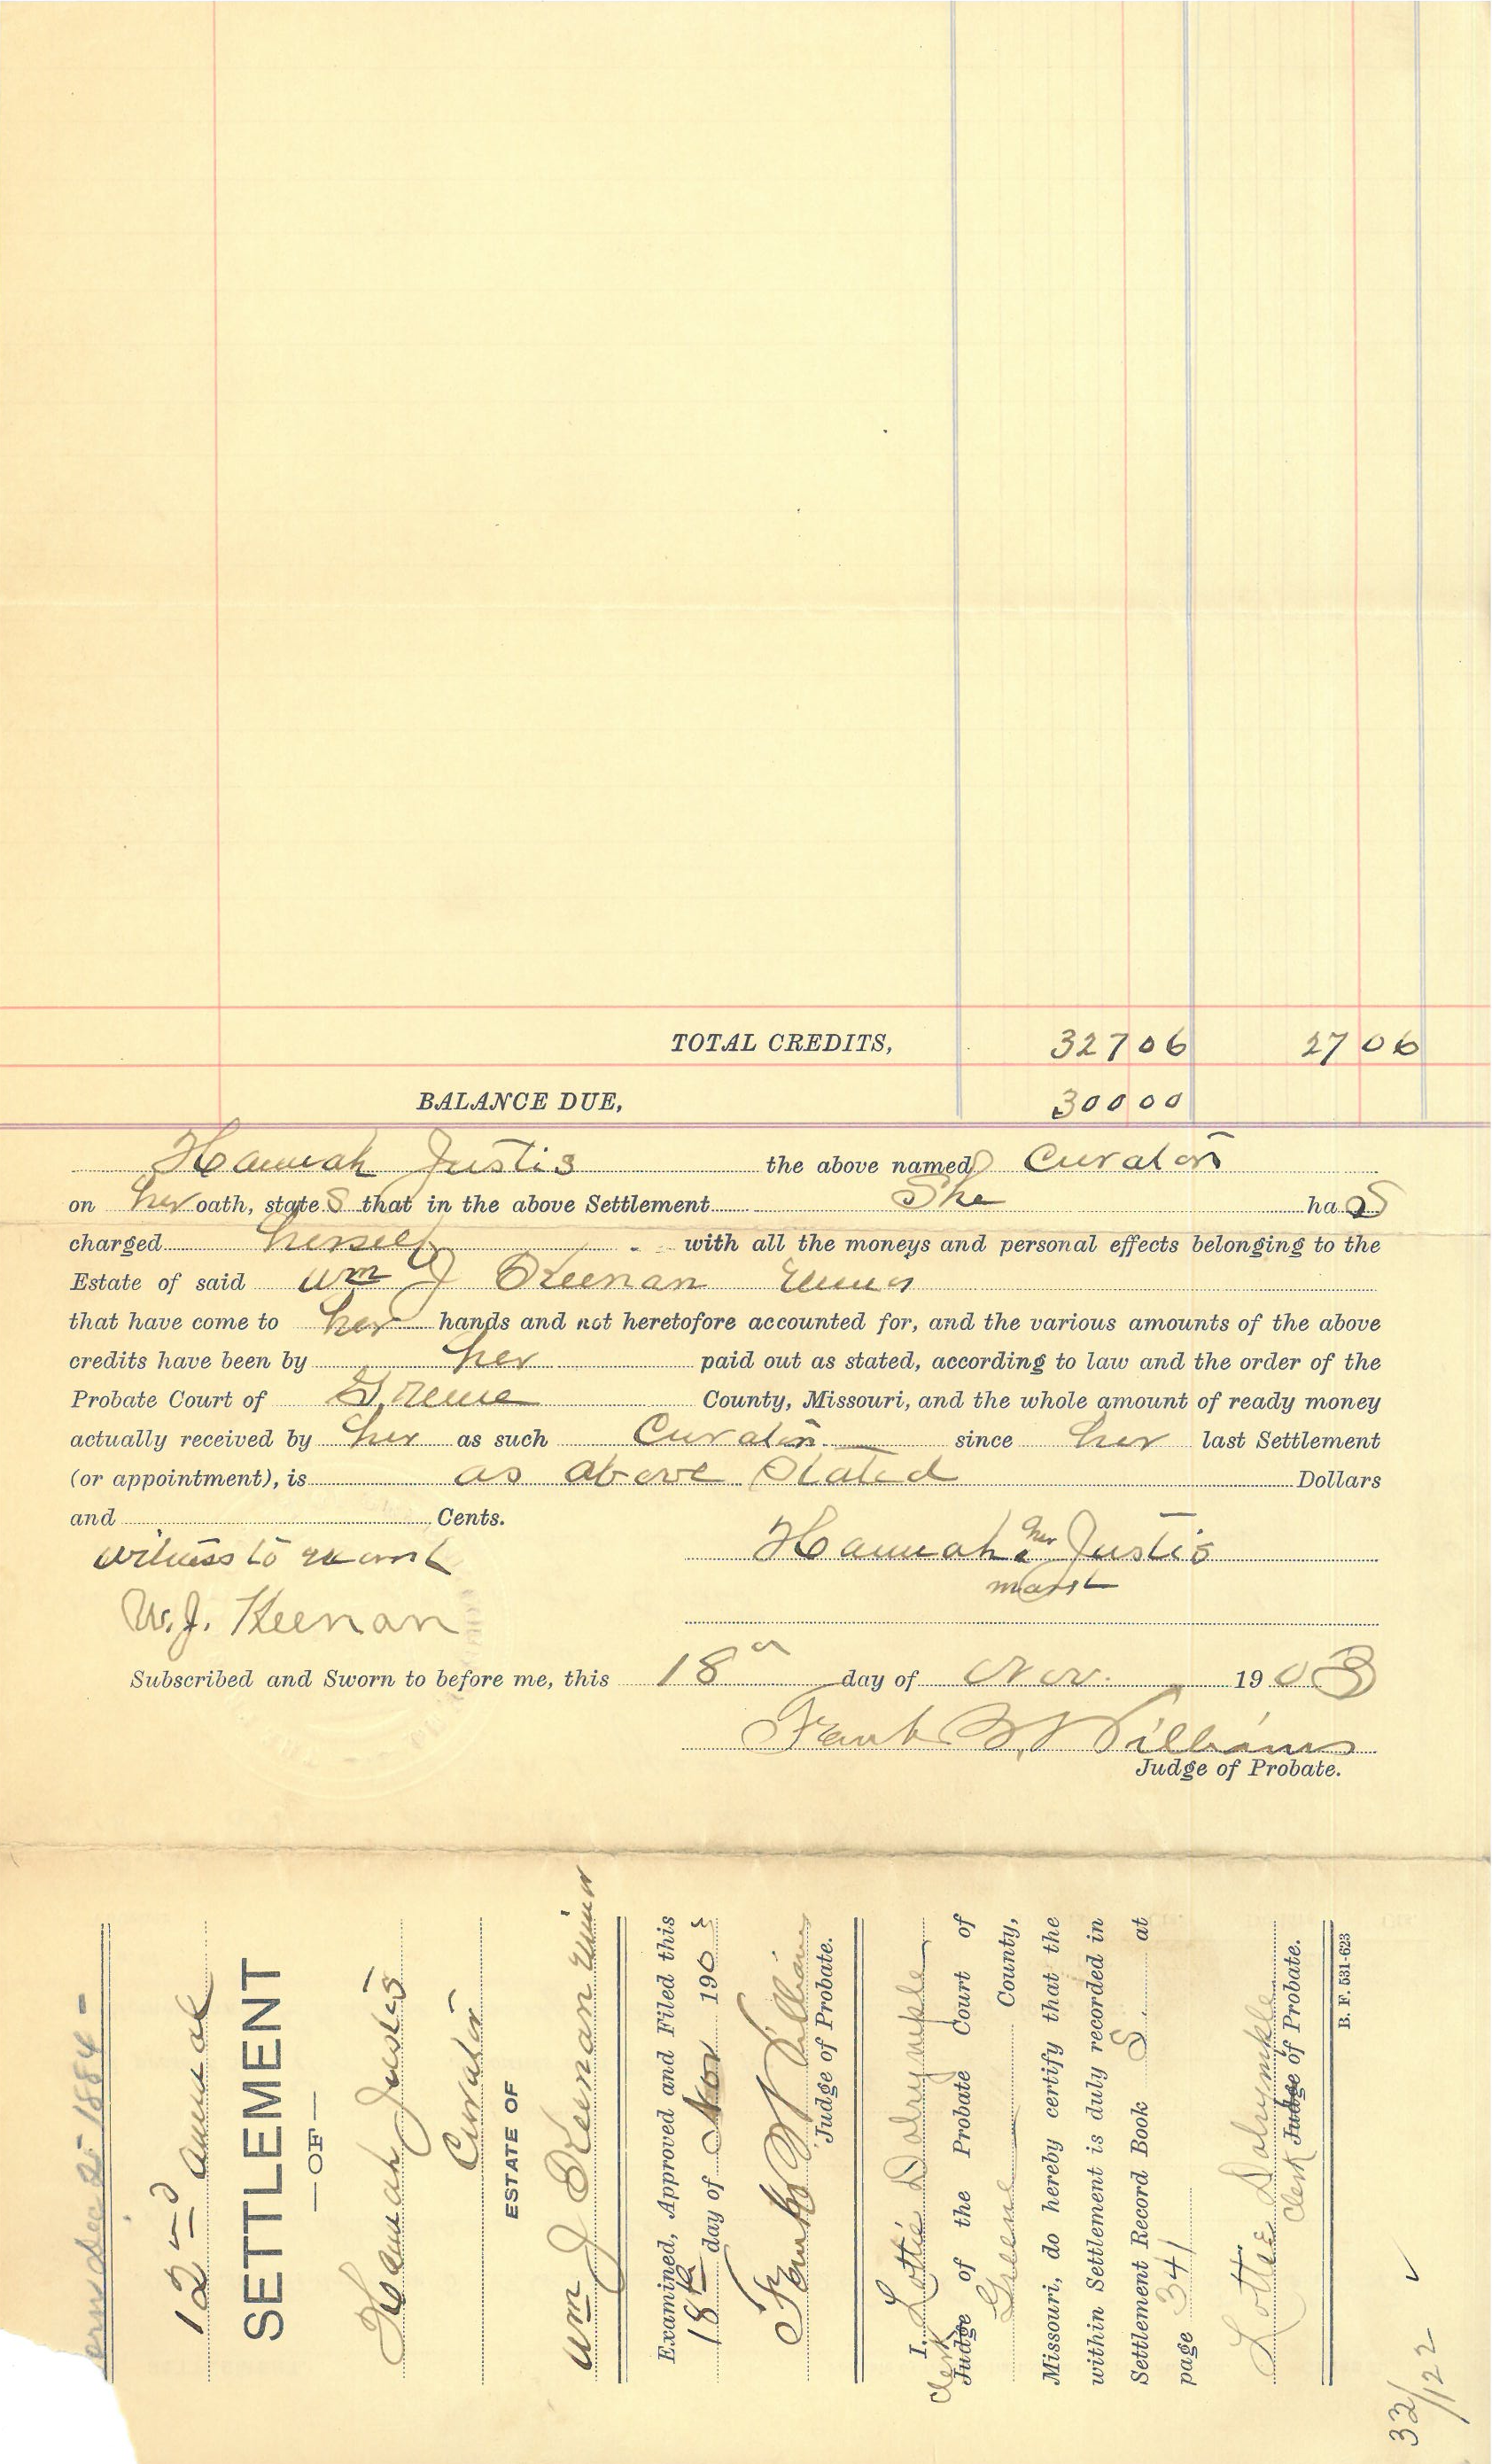 TOTAL CREDITS, 327 06 27 06
BALANCE DUE, 300 00
Hannah Justis the above named Curator
on her oath, states that in the above Settlement She has
charged herself with all the moneys and personal effects belonging to the
Estate of said Wm J Keenan Minor
that have come to her hands and not heretofore accounted for, and the various amounts of the above
credits have been by her paid out as stated, according to law and the order of the
Probate Court of Greene County, Missouri, and the whole amount of ready money
actually received by her as such Curator since her last Settlement
(or appointment), is as above Stated Dollars
and Cents.
Witness to mark
Hannah her x Justis
mark
W. J. Keenan
Subscribed and Sworn to before me, this 18th day of Nov. 1903
Frank B. Williams
Judge of Probate.
Born dec 25 1884 -
12nd annual
SETTLEMENT
— OF —
Hannah Justis
Curator
ESTATE OF
Wm J Keenan Minor
Examined, Approved and Filed this
18th day of Nov 1903
Frank B Williams
Judge of Probate.
I, Lottie Dalrymple
Clerk Judge of the Probate Court of
Greene County,
Missouri, do hereby certify that the
within Settlement is duly recorded in
Settlement Record Book S at
page 341
Lottie Dalrymple
Clerk Judge of Probate.
B. F. 531-623
32/122 ✓